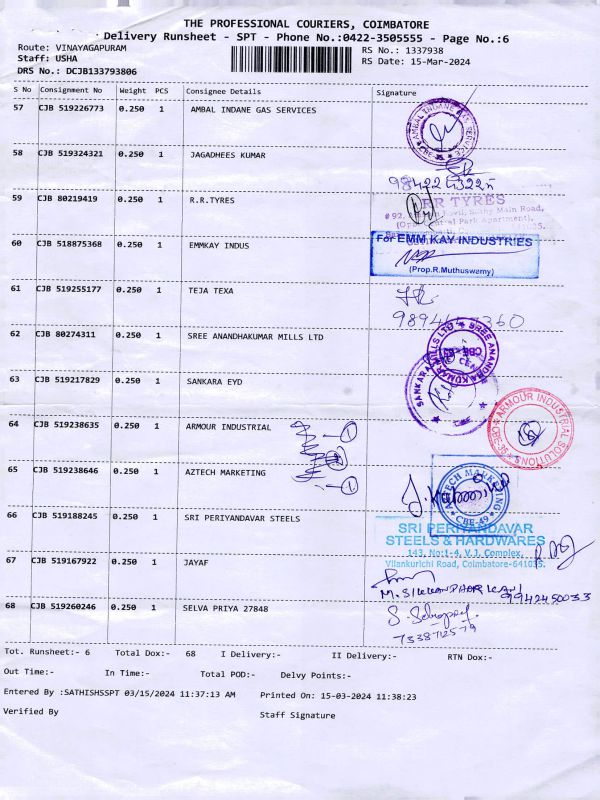 THE PROFESSIONAL COURIERS, COIMBATORE
Delivery Runsheet - SPT - Phone No.:0422-3505555 - Page No.:6
Route: VINAYAGAPURAM
RS No.: 1337938
Staff: USHA
RS Date: 15-Mar-2024
DRS No.: DCJB133793806
S No Consignment No Weight PCS Consignee Details Signature
57 CJB 519226773 0.250 1 AMBAL INDANE GAS SERVICES
AMBAL INDANE GAS SERVICE
58 CJB 519324321 0.250 1 JAGADHEES KUMAR
59 CJB 80219419 0.250 1 R.R.TYRES
RR TYRES
60 CJB 518875368 0.250 1 EMMKAY INDUS
For EMM KAY INDUSTRIES
(Prop.R.Muthuswamy)
61 CJB 519255177 0.250 1 TEJA TEXA
62 CJB 80274311 0.250 1 SREE ANANDHAKUMAR MILLS LTD
63 CJB 519217829 0.250 1 SANKARA EYD
64 CJB 519238635 0.250 1 ARMOUR INDUSTRIAL
ARMOUR INDUSTRIAL SOLUTIONS
65 CJB 519238646 0.250 1 AZTECH MARKETING
AZTECH MARKETING
CBE-49
66 CJB 519188245 0.250 1 SRI PERIYANDAVAR STEELS
SRI PERIYANDAVAR
STEELS & HARDWARES
143, No:1-4, V.J. Complex,
Vilankurichi Road, Coimbatore-641035.
67 CJB 519167922 0.250 1 JAYAF
9942450033
68 CJB 519260246 0.250 1 SELVA PRIYA 27848
Tot. Runsheet:- 6 Total Dox:- 68 I Delivery:- II Delivery:- RTN Dox:-
Out Time:- In Time:- Total POD:- Delvy Points:-
Entered By :SATHISHSSPT 03/15/2024 11:37:13 AM Printed On: 15-03-2024 11:38:23
Verified By Staff Signature